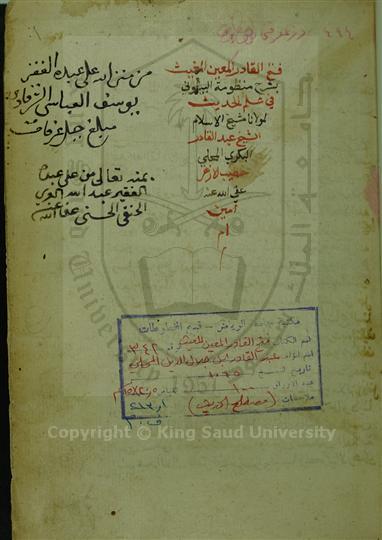 ٤٩٤
فتح القادر المعين المغيث
بشرح منظومة البيقوني
في علم الحديث
لمولانا شيخ الاسلام
الشيخ عبد القادر
البكري المحلي
خطيب الازهر
عفى الله عنه
آمين
ام
م
من منن الله على عبده الفقير
يوسف العباسي
مبلغ جبل عرفات
بمنه تعالى من على عبده
الفقير عبد الله
الحنفي الحسني عفا الله عنه
مكتبة جامعة الرياض - قسم المخطوطات
اسم الكتاب فتح القادر المعين المغيث ٣٤٢
اسم المؤلف عبد القادر بن جلال الدين المحلي
تاريخ النسخ ١٠٦٥
عدد الاوراق ١٠
ملاحظات (مصطلح الحديث)
٢١٣
ف.م
Copyright © King Saud University
1957
University